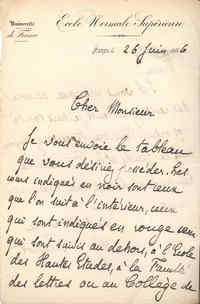 Université
de France
Ecole Normale Supérieure
26 Juin
Cher Monsieur
Je vous envoie le tableau
que vous désirez posséder. Les
cours indiqués en noir sont ceux
que l'on suit à l'intérieur, ceux
qui sont indiqués en rouge ceux
qui sont suivis au dehors, à l'Ecole
des Hautes Etudes, à la Faculté
des lettres ou au Collège de